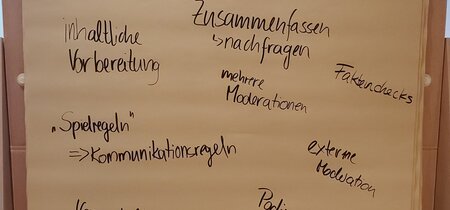 inhaltliche
Vorbereitung
Zusammenfassen
↳nachfragen
mehrere
Moderationen
Faktenchecks
„Spielregeln"
=> Kommunikationsregeln
externe
Moderation